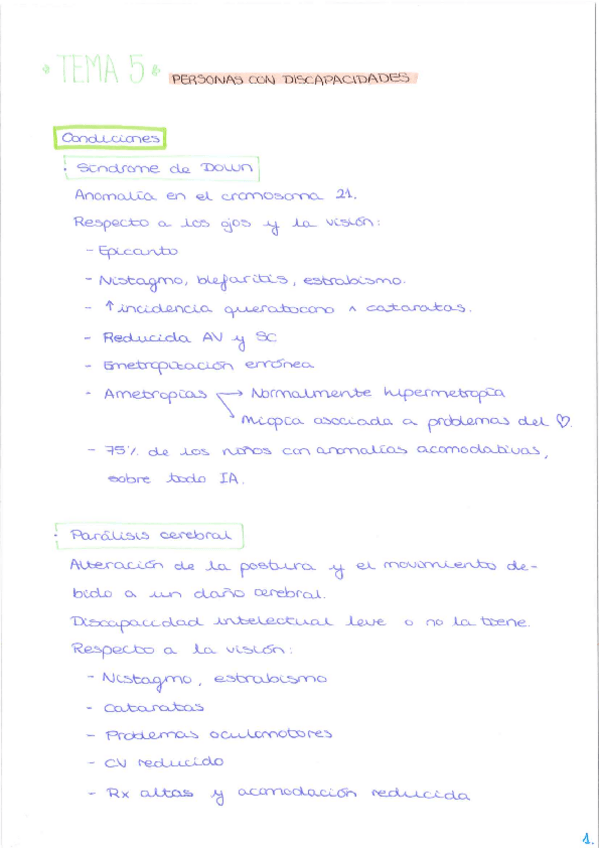 * TEMA 5 * PERSONAS CON DISCAPACIDADES
Condiciones
· Síndrome de Down
Anomalía en el cromosoma 21.
Respecto a los ojos y la visión:
- Epicanto
- Nistagmo, blefaritis, estrabismo.
- ↑ incidencia queratocono ^ cataratas.
- Reducida AV y SC
- Emetropización errónea
- Ametropías → Normalmente hipermetropía
↘ Miopía asociada a problemas del ♡.
- 75% de los niños con anomalías acomodativas,
sobre todo IA.
· Parálisis cerebral
Alteración de la postura y el movimiento de-
bido a un daño cerebral.
Discapacidad intelectual leve o no la tiene.
Respecto a la visión:
- Nistagmo, estrabismo
- Cataratas
- Problemas oculomotores
- CV reducido
- Rx altas y acomodación reducida
1.